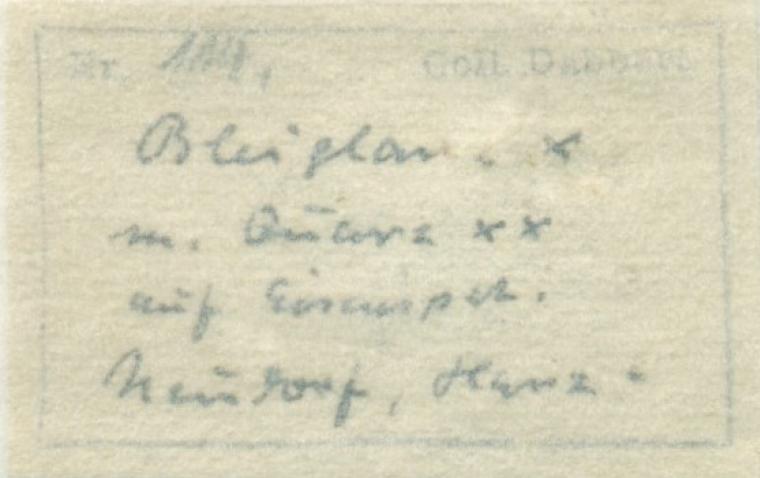 Nr.
Coll. Dabbert
Bleiglanz x
m. Quarz xx
auf Eisenspat.
Neudorf, Harz.